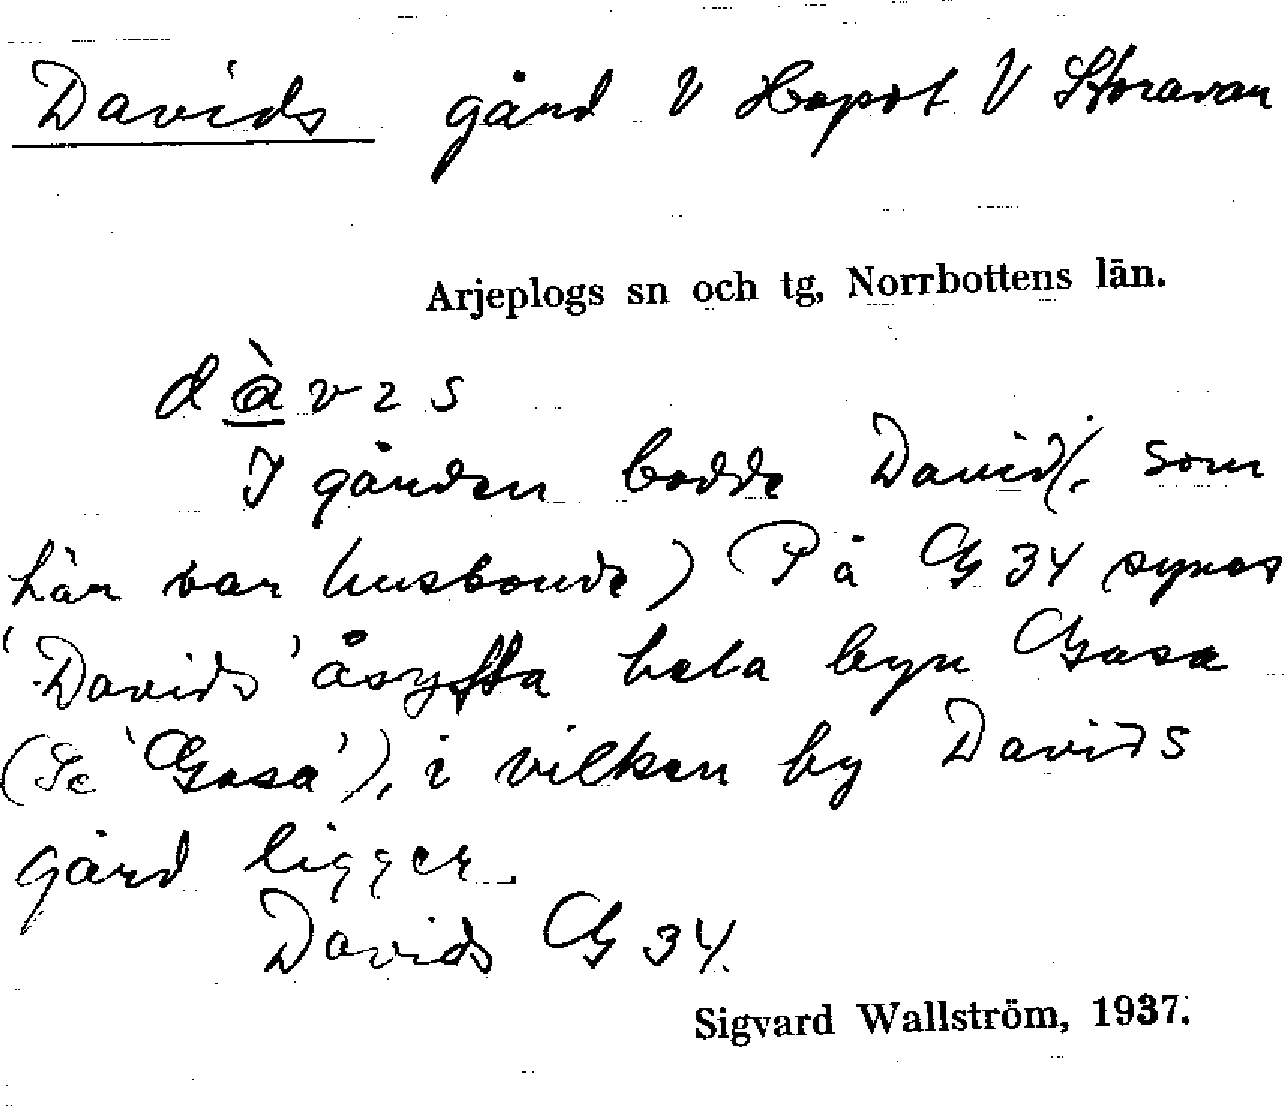 Davids gård V Hapot V Storavan
Arjeplogs sn och tg, Norrbottens län.
dàvıs
I gården bodde David(, som
här var husbonde) På G 34 synes
'Davids' åsyfta hela byn Gasa
(Se 'Gasa'), i vilken by Davids
gård ligger.
Davids G 34.
Sigvard Wallström, 1937.